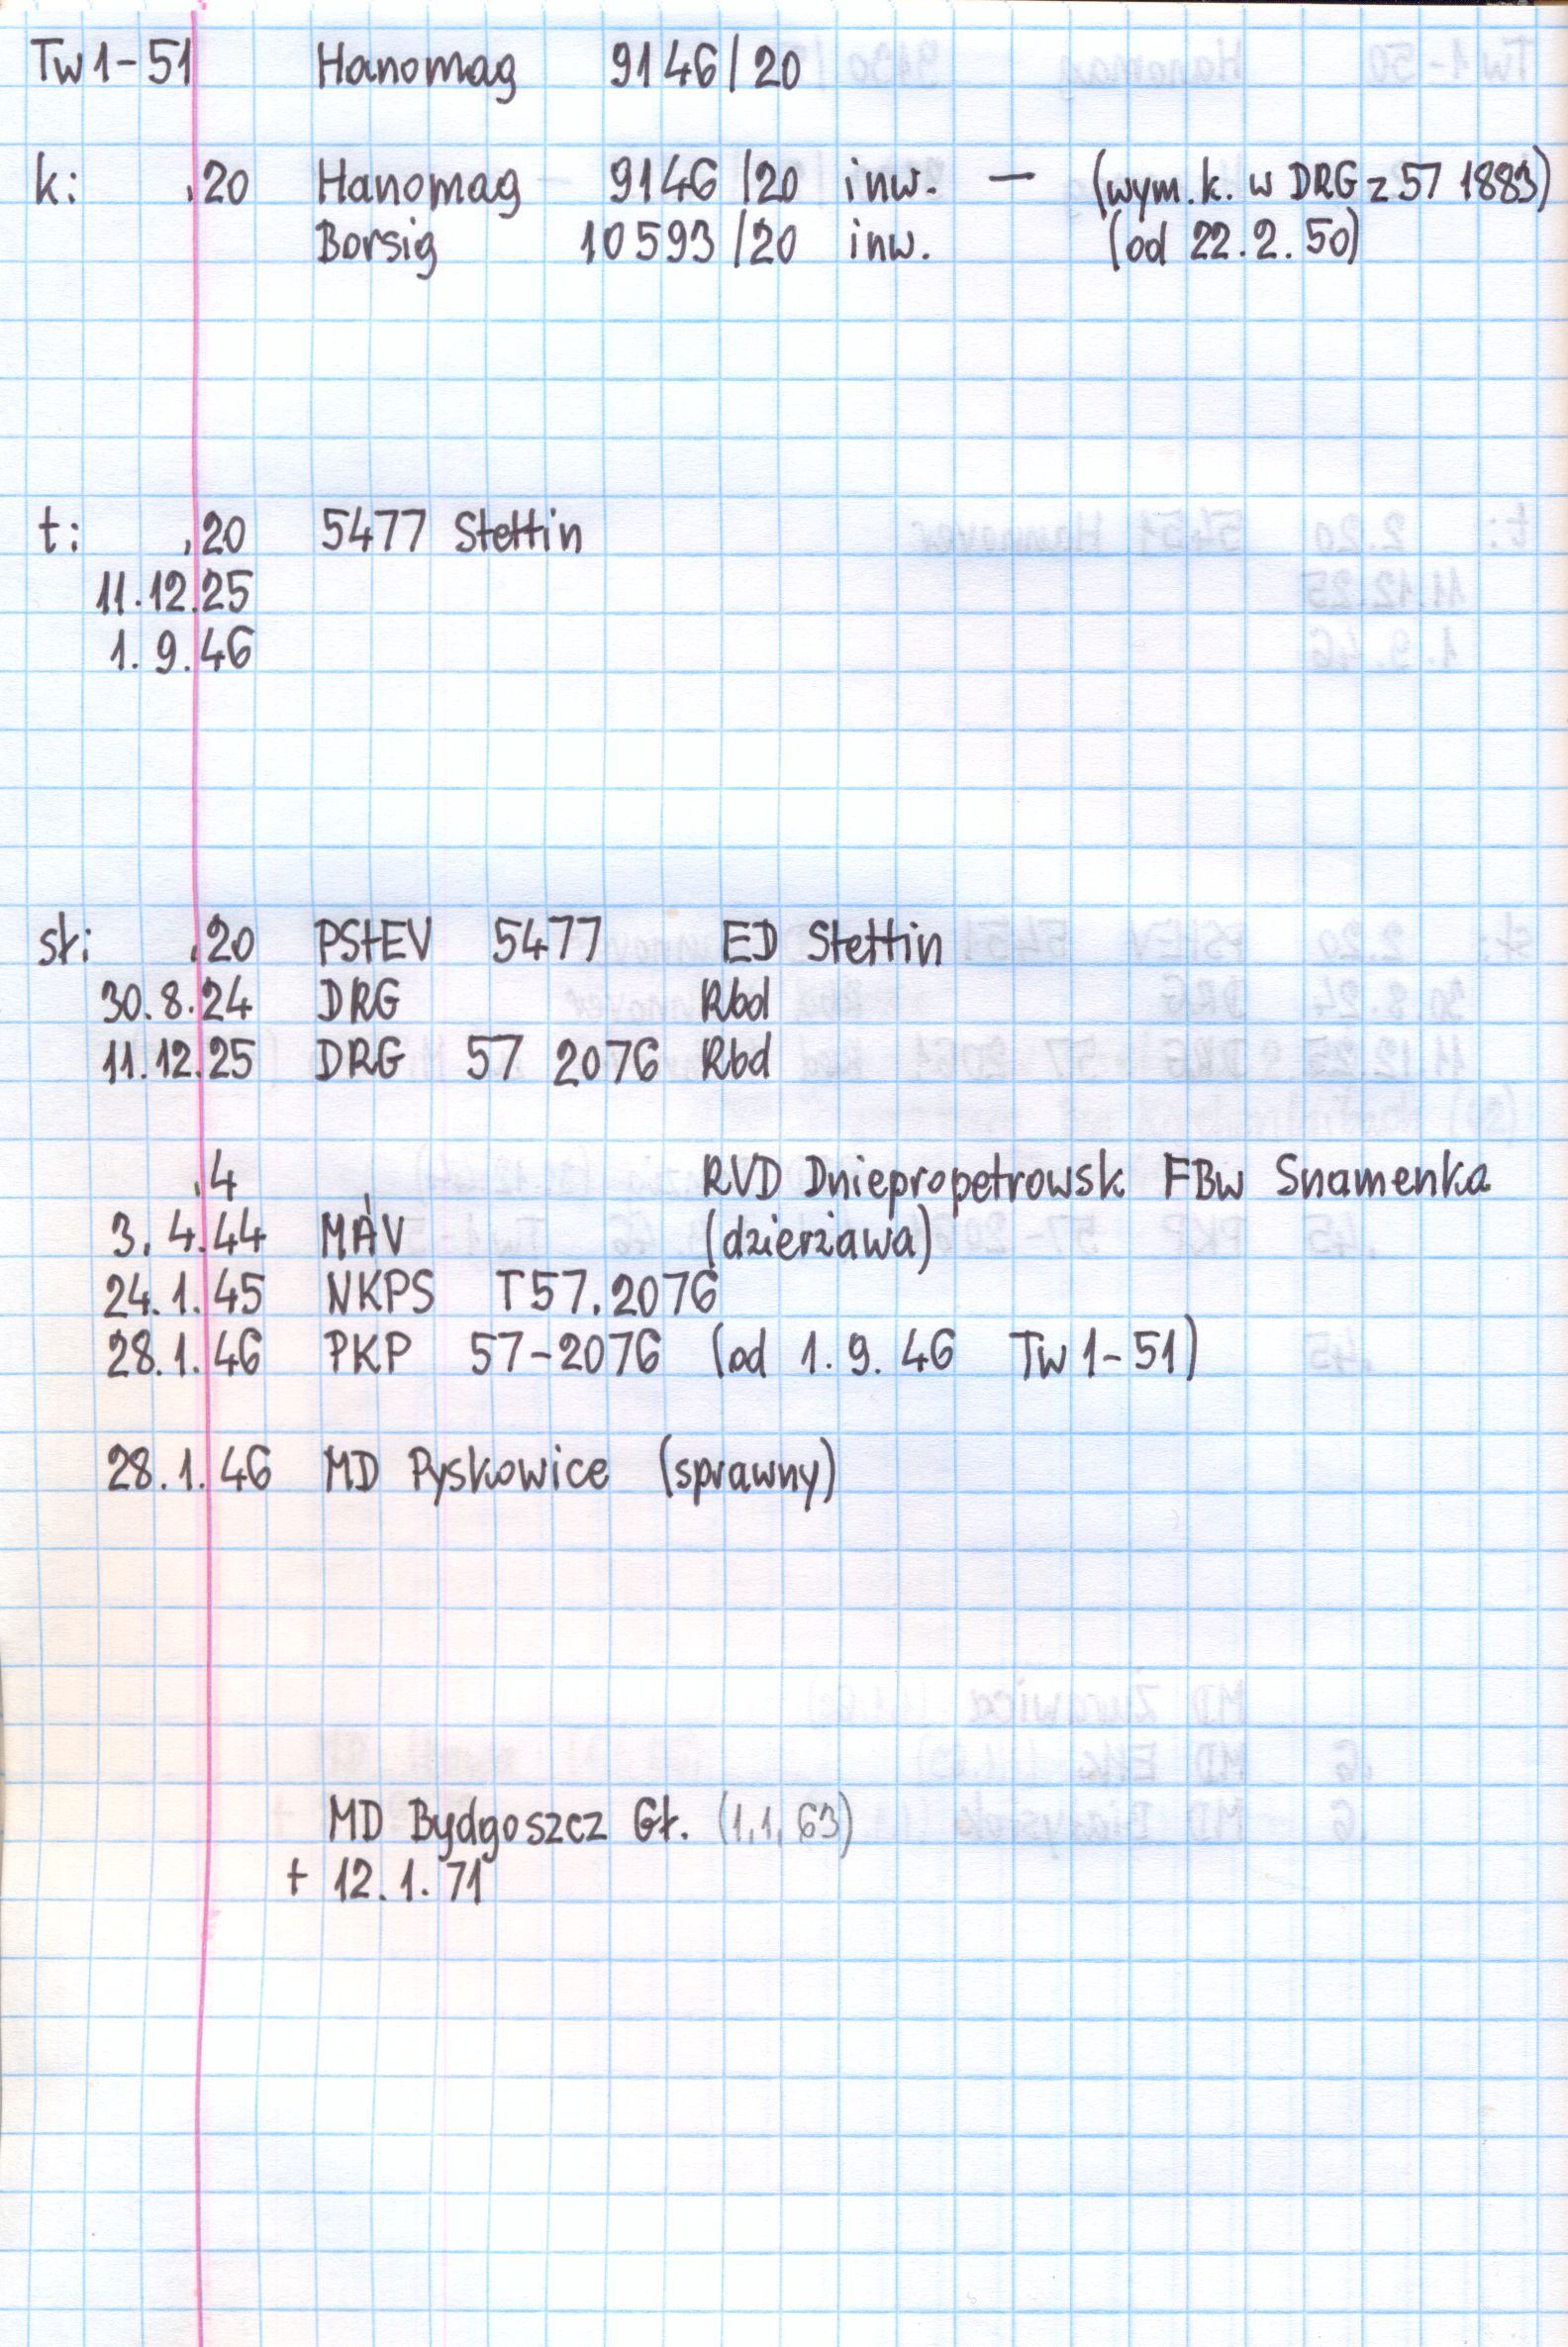 Tw1-51 Hanomag 9146/20
k: .20 Hanomag 9146/20 inw. - (wym.k. w DRG z 57 1883)
Borsig 10593/20 inw. (od 22.2.50)
t: .20 5477 Stettin
11.12.25
1.9.46
sł: .20 PStEV 5477 ED Stettin
30.8.24 DRG Rbd
11.12.25 DRG 57 2076 Rbd
.4 RVD Dniepropetrowsk FBw Snamenka
3.4.44 MÁV (dzierżawa)
24.1.45 NKPS T57.2076
28.1.46 PKP 57-2076 (od 1.9.46 Tw1-51)
28.1.46 MD Pyskowice (sprawny)
MD Bydgoszcz Gł. (1.1.63)
+ 12.1.71